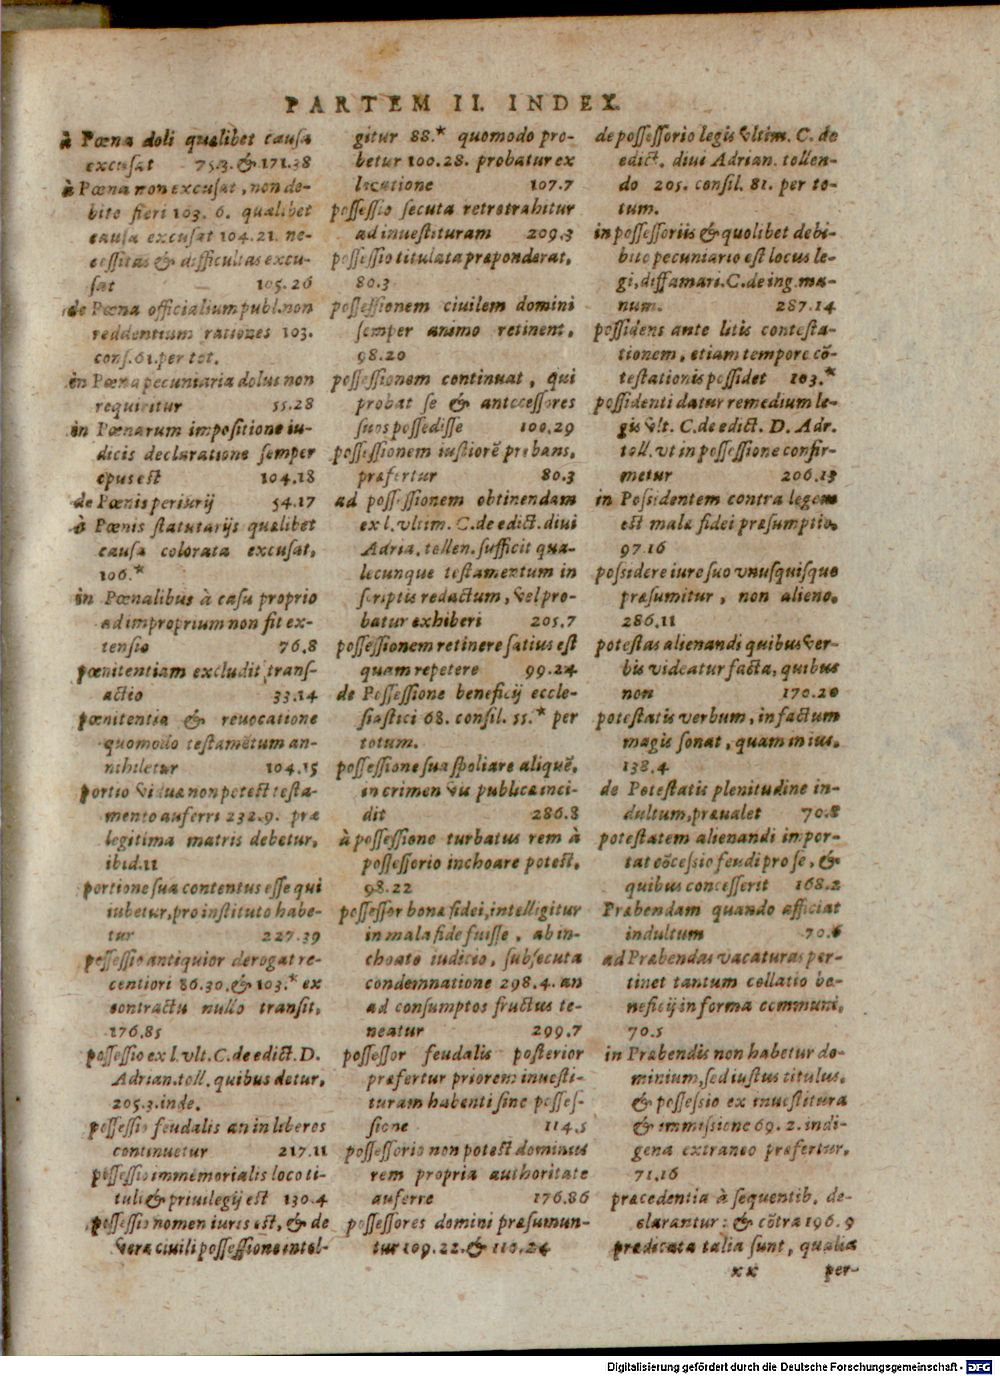 PARTEM II. INDEX.
à Pœna doli qualibet causa
excusat 75.3. & 171.38
à Pœna non excusat, non de-
bito fieri 103. 6. qualibet
causa excusat 104.21. ne-
cessitas & difficultas excu-
sat 105.26
de Pœna officialium publ. non
reddentium rationes 103.
cons. 61. per tot.
in Pœna pecuniaria dolus non
requiritur 55.28
in Pœnarum impositione iu-
dicis declaratione semper
opus est 104.18
de Pœnis periurij 54.17
à Pœnis statutarijs qualibet
causa colorata excusat,
106.*
in Pœnalibus à casu proprio
ad improprium non fit ex-
tensio 76.8
pœnitentiam excludit trans-
actio 33.14
pœnitentia & reuocatione
quomodo testamẽtum an-
nihiletur 104.15
portio viduæ non potest testa-
mento auferri 232.9. præ
legitima matris debetur,
ibid. 11
portione sua contentus esse qui
iubetur, pro instituto habe-
tur 227.39
possessio antiquior derogat re-
centiori 86.30. & 103.* ex
contractu nullo transit,
176.85
possessio ex l. vlt. C. de edict. D.
Adrian. toll. quibus detur,
205.3. inde.
possessio feudalis an in liberos
continuetur 217.11
possessio immemorialis loco ti-
tuli & priuilegij est 130.4
possessio nomen iuris est, & de
vera ciuili possessione intel-
gitur 88.* quomodo pro-
betur 100.28. probatur ex
locatione 107.7
possessio secuta retrotrahitur
ad inuestituram 209.3
possessio titulata præponderat,
80.3
possessionem ciuilem domini
semper animo retinent,
98.20
possessionem continuat, qui
probat se & antecessores
suos possedisse 100.29
possessionem iustiorẽ probans,
præfertur 80.3
ad possessionem obtinendam
ex l. vltim. C. de edict. diui
Adria. tollen. sufficit qua-
lecunque testamentum in
scriptis redactum, vel pro-
batur exhiberi 205.7
possessionem retinere satius est
quam repetere 99.24
de Possessione beneficij eccle-
siastici 68. consil. 55.* per
totum.
possessione sua spoliare aliquẽ,
in crimen vis publicæ inci-
dit 286.8
à possessione turbatus rem à
possessorio inchoare potest,
98.22
possessor bonæ fidei, intelligitur
in mala fide fuisse, ab in-
choato iudicio, subsecuta
condemnatione 298.4. an
ad consumptos fructus te-
neatur 299.7
possessor feudalis posterior
præfertur priorem inuesti-
turam habenti sine posses-
sione 114.5
possessorio non potest dominus
rem propria authoritate
auferre 176.86
possessores domini præsumun-
tur 109.22. & 110.24
de possessorio legis vltim. C. de
edict. diui Adrian. tollen-
do 205. consil. 81. per to-
tum.
in possessoriis & quolibet debi-
bito pecuniario est locus le-
gi, diffamari. C. de ing. ma-
num. 287.14
possidens ante litis contesta-
tionem, etiam tempore cõ-
testationis possidet 103.*
possidenti datur remedium le-
gis vlt. C. de edict. D. Adr.
toll. vt in possessione confir-
metur 206.13
in Possidentem contra legem
est malæ fidei præsumptio,
97.16
possidere iure suo vnusquisque
præsumitur, non alieno,
286.11
potestas alienandi quibus ver-
bis videatur facta, quibus
non 170.20
potestatis verbum, in factum
magis sonat, quam in ius,
138.4
de Potestatis plenitudine in-
dultum, præualet 70.8
potestatem alienandi impor-
tat cõcessio feudi pro se, &
quibus concesserit 168.2
Præbendam quando afficiat
indultum 70.6
ad Præbendas vacaturas per-
tinet tantum collatio be-
neficij in forma communi,
70.5
in Præbendis non habetur do-
minium, sed iustus titulus,
& possessio ex inuestitura
& immissione 69.2. indi-
gena extraneo præfertur,
71.16
præcedentia à sequentib. de-
clarantur: & cõtra 196.9
prædicata talia sunt, qualia
xx per-
Digitalisierung gefördert durch die Deutsche Forschungsgemeinschaft - DFG